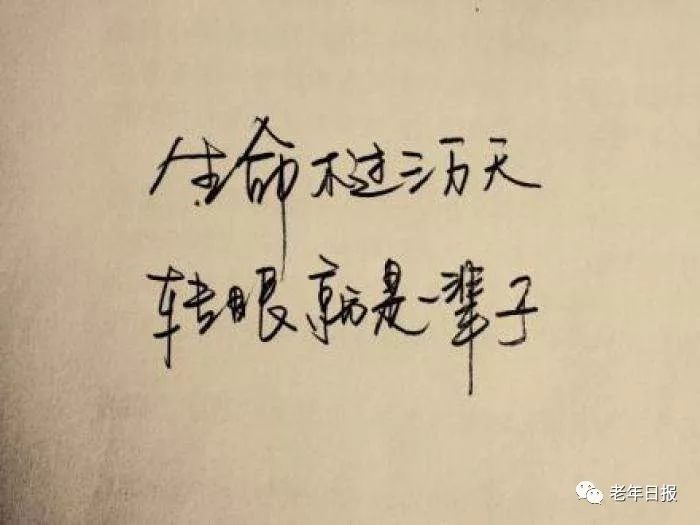 生命不过三万天
转眼就是一辈子
老年日报